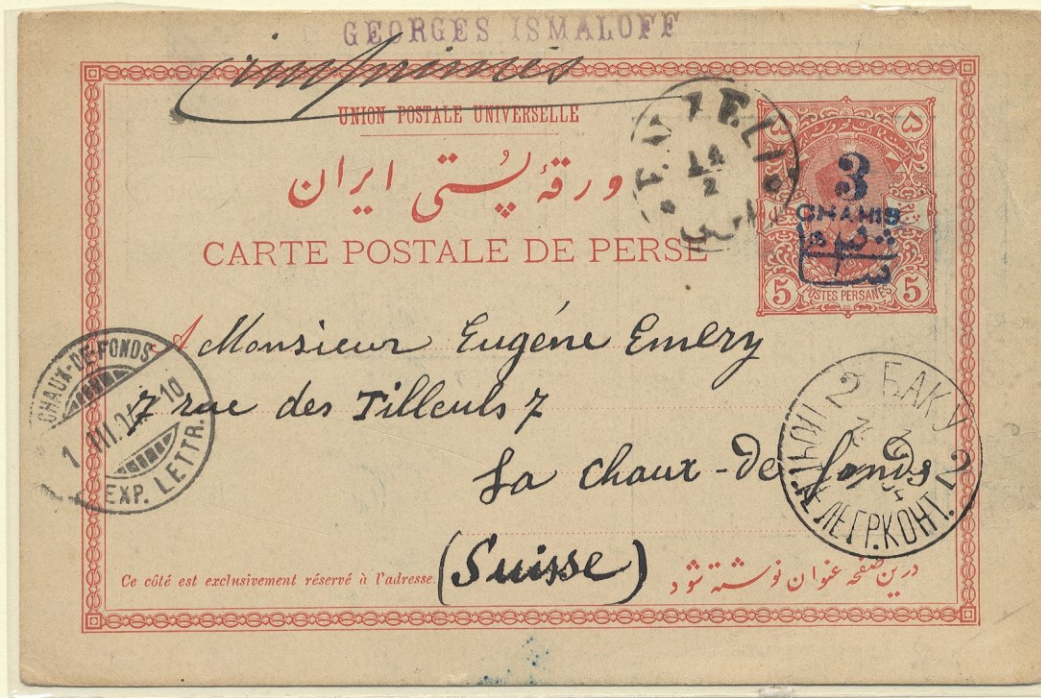 GEORGES ISMALOFF
imprimés
UNION POSTALE UNIVERSELLE
ورقهٔ پُستی ایران
CARTE POSTALE DE PERSE
ENZELI
14
2
۵ ۵
3
CHAHIS
5 POSTES PERSANES 5
A Monsieur Eugéne Emery
7 rue des Tilleuls 7
La chaux-de fonds
(Suisse)
CHAUX-DE-FONDS
1 III. 10
EXP. LETTR.
БАКУ
2 2
ТЕЛЕГР.КОНТ.
Ce côté est exclusivement réservé à l'adresse.
درین صفحه عنوان نوشته شود